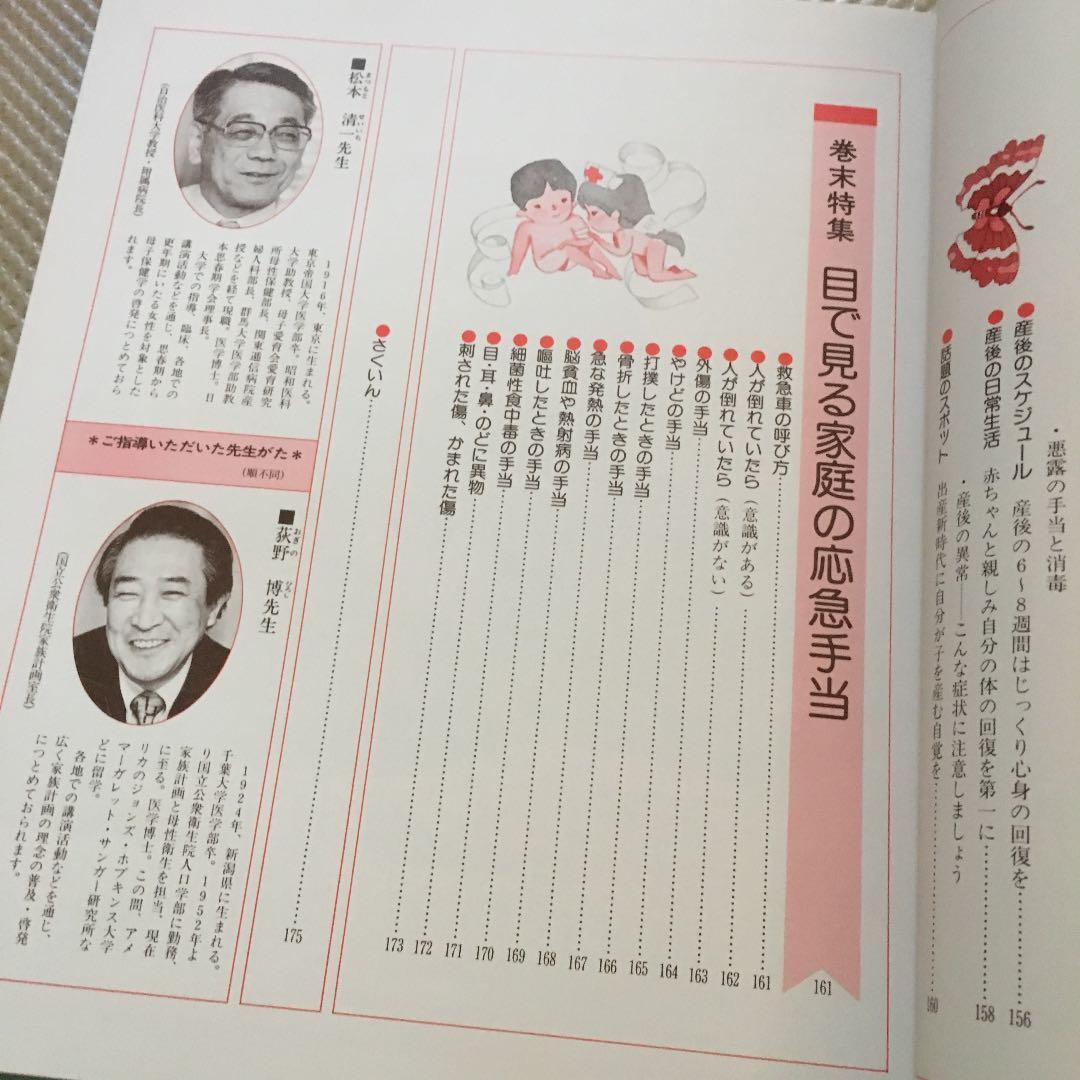 ・悪露の手当と消毒
●産後のスケジュール 産後の6～8週間はじっくり心身の回復を……156
●産後の日常生活 赤ちゃんと親しみ自分の体の回復を第一に……158
・産後の異常――こんな症状に注意しましょう
●話題のスポット 出産新時代に自分が子を産む自覚を……160
巻末特集 目で見る家庭の応急手当 161
●救急車の呼び方……161
●人が倒れていたら（意識がある）……162
●人が倒れていたら（意識がない）……163
●外傷の手当……164
●やけどの手当……165
●打撲したときの手当……166
●骨折したときの手当……167
●急な発熱の手当……168
●脳貧血や熱射病の手当……169
●嘔吐したときの手当……170
●細菌性食中毒の手当……171
●目・耳・鼻・のどに異物……172
●刺された傷、かまれた傷……173
●さくいん……175
＊ご指導いただいた先生がた＊
（順不同）
■松本 清一先生
まつもと せいいち
（自治医科大学教授・附属病院長）
1916年、東京に生まれる。
東京帝国大学医学部卒。昭和医科
大学助教授、母子愛育会愛育研究
所母性保健部長、関東逓信病院産
婦人科部長、群馬大学医学部助教
授などを経て現職。医学博士。日
本思春期学会理事長。
大学での指導、臨床、各地での
講演活動などを通じ、思春期から
更年期にいたる女性を対象とした
母子保健学の啓発につとめておら
れます。
■荻野 博先生
おぎの ひろし
（国立公衆衛生院家族計画室長）
1924年、新潟県に生まれる。
千葉大学医学部卒。1952年よ
り国立公衆衛生院人口学部に勤務、
家族計画と母性衛生を担当、現在
に至る。医学博士。この間、アメ
リカのジョンズ・ホプキンス大学
マーガレット・サンガー研究所な
どに留学。
各地での講演活動などを通じ、
広く家族計画の理念の普及・啓発
につとめておられます。